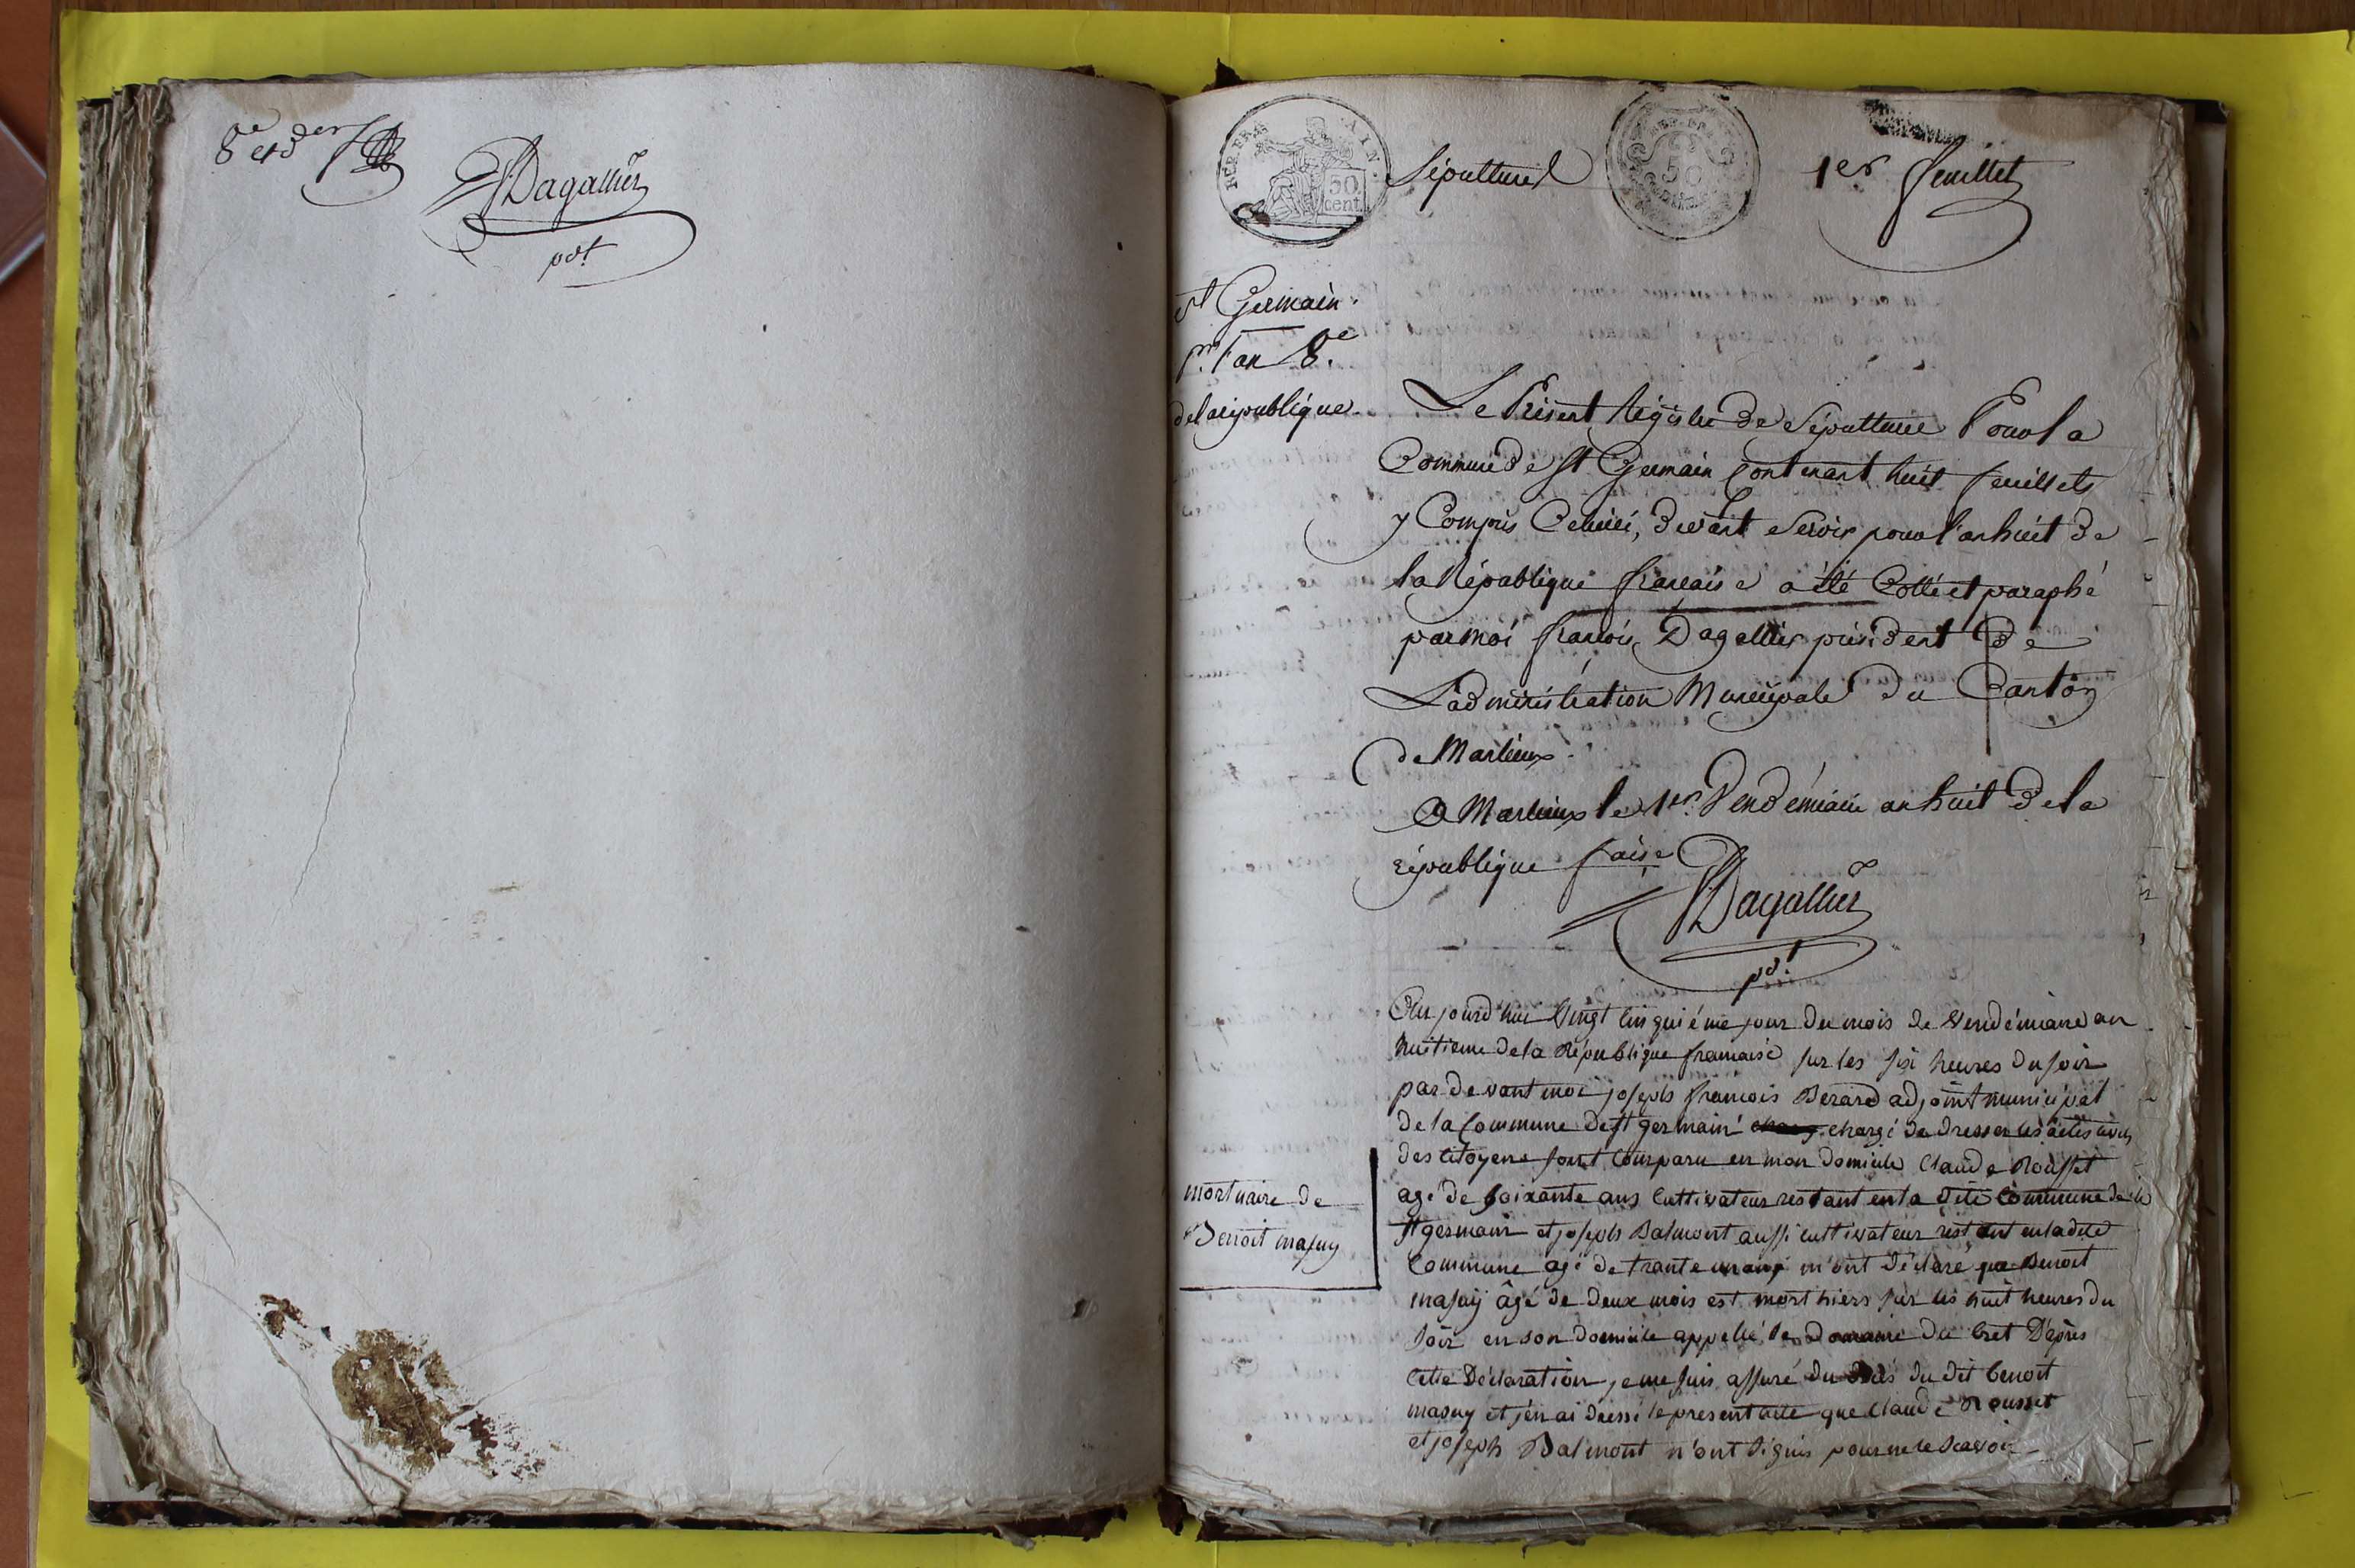 8e et der
Dagallier
pdt
RÉP. FRA. 50 cent.
A IN.
Sépultures
50
1er feuillet
St Germain.
pr. l'an 8e.
de la république.
Le Présent Régistre de Sépulture Pour la
Commune de St Germain Contenant huit feuillets
y Compris Celuici, devant Servir pour l'an huit de
la République française a été Cotté et paraphé
par moi françois Dagallier président de
L'administration Municipale du Canton
de Marlieux.
A Marlieux le 1er. Vendémiaire an huit de la
république faise
Dagallier
pdt.
Au jourd'hui Vingt Cinquiéme jour du mois de Vendémiaire an
huitieme de la République francaise sur les six heures du soir
par devant moi joseph francois Berard adjoint municipal
de la Commune de St germain chargé de dresser les actes civils
des Citoyens sont Comparu en mon domicile Claude Rousset
agé de soixante ans Cultivateur restant en la dite Commune de
St germain et joseph Balmont aussi cultivateur restant en la dite
Commune agé de trante un ans m'ont déclaré que Benoit
masuy âgé de deux mois est mort hiers sur les huit heures du
soir en son domicile appellé le domaine du Cret D'après
cette Déclaration je me suis assuré du décés du dit benoit
masuy et j'en ai dressé le present acte que Claude Rousset
et joseph Balmont n'ont signés pour ne le scavoir
mortuaire de
Benoit masuy